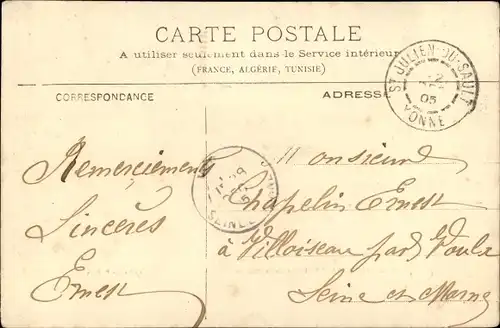 CARTE POSTALE
A utiliser seulement dans le Service intérieur
(FRANCE, ALGÉRIE, TUNISIE)
CORRESPONDANCE
ADRESSE
ST JULIEN-DU-SAULT
05
YONNE
Remerciements
Sincères
Ernest
Monsieur
Chapelin Ernest
à Villoiseau par Voulx
Seine et Marne
SEINE